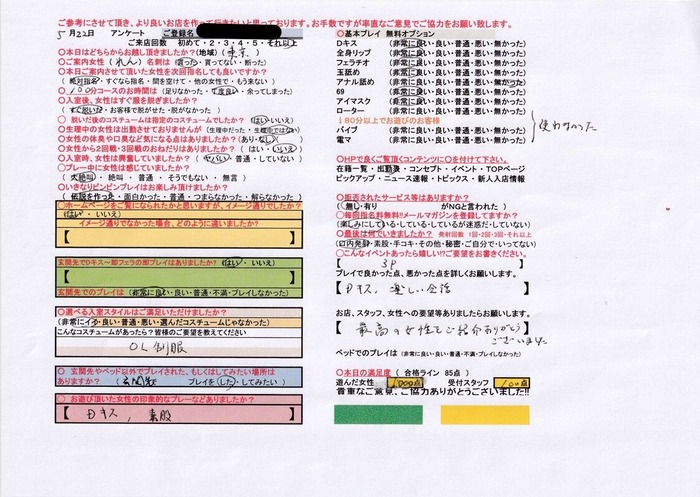 ご参考にさせて頂き、より良いお店を作って行きたいと思っております。お手数ですが率直なご意見でご協力をお願い致します。
5月22日 アンケート ご登録名
ご来店回数 初めて・2・3・4・5・それ以上
○本日はどちらからお越し頂きましたか?(地域)(東京)
○ご案内女性(れん)名刺は(貰った・買ってない・断った)
○本日ご案内させて頂いた女性を次回指名しても良いですか?
(絶対指名・すぐなら指名・間を空けて・他の女性で・もう来ない)
○100分コースのお時間は(足りなかった・丁度良い・余ってしまった)
○入室後、女性はすぐ服を脱ぎましたか?
(すぐ脱いだ・お客様で脱がせた・脱がなかった)
○ 脱いだ後のコスチュームは指定のコスチュームでしたか?(はい・いいえ)
○生理中の女性は出勤させておりませんが(生理中だった・生理中ではない)
○女性の体臭や口臭など気になる点はありましたか?(あり・なし)
○女性から2回戦・3回戦のおねだりはありましたか?(はい・いいえ)
○入室時、女性は興奮していましたか?(ヤバい・普通・していない)
○プレー中に女性は感じていましたか?
(大絶叫・絶叫・普通・そうでもない・無言)
○いきなりビンビンプレイはお楽しみ頂けましたか?
(伝説を作った・面白かった・普通・つまらなかった・解らなかった)
○ホームページをご覧になられたかと思いますが、イメージ通りでしたか?
(はい・いいえ)
イメージ通りでなかった場合、どのように違いましたか?
【 】
玄関先でDキス~即フェラの即プレイはありましたか?(はい・いいえ)
【 】
玄関先でのプレイは(非常に良い・良い・普通・不満・プレイしなかった)
○選べる入室スタイルはご満足いただけましたか?
(非常にイイ・良い・普通・悪い・選んだコスチュームじゃなかった)
こんなコスチュームがあったら?皆様のご要望を教えてください
OL制服
○ 玄関先やベッド以外でプレイされた、もしくはしてみたい場所は
ありますか?(玄関先 プレイを(した・してみたい)
○ お遊び頂いた女性の印象的なプレーなどありましたか?
【 Dキス、素股 】
○基本プレイ 無料オプション
Dキス (非常に良い・良い・普通・悪い・無かった)
全身リップ (非常に良い・良い・普通・悪い・無かった)
フェラチオ (非常に良い・良い・普通・悪い・無かった)
玉舐め (非常に良い・良い・普通・悪い・無かった)
アナル舐め (非常に良い・良い・普通・悪い・無かった)
69 (非常に良い・良い・普通・悪い・無かった)
アイマスク (非常に良い・良い・普通・悪い・無かった)
ローター (非常に良い・良い・普通・悪い・無かった)
↓80分以上でお遊びのお客様
バイブ (非常に良い・良い・普通・悪い・無かった)
電マ (非常に良い・良い・普通・悪い・無かった)
使わなかった
○HPで良くご覧頂くコンテンツに○を付けて下さい。
在籍一覧・出勤表・コンセプト・イベント・TOPページ
ピックアップ・ニュース速報・トピックス・新人入店情報
○拒否されたサービス等はありますか?
(無し・有り がNGと言われた)
○毎回指名料無料!!メールマガジンを登録してますか?
(楽しみにしている・している・しているが迷惑だ・していない)
○最後は何でいきましたか? 発射回数 1回・2回・3回・それ以上
(口内発射・素股・手コキ・その他・秘密・ご自分で・いってない)
○こんなイベントあったら嬉しい!?ご要望をお書きください。
【 3P 】
プレイで良かった点、悪かった点を詳しくお願いします。
【 Dキス、楽しい会話 】
お店、スタッフ、女性への要望等ありましたらお願いします。
【 最高の女性をご紹介ありがとう
ございました 】
ベッドでのプレイは(非常に良い・良い・普通・不満・プレイしなかった)
○本日の満足度 (合格ライン 85点)
遊んだ女性 1000点 受付スタッフ 100点
貴重なご意見、ご協力ありがとうございました!!